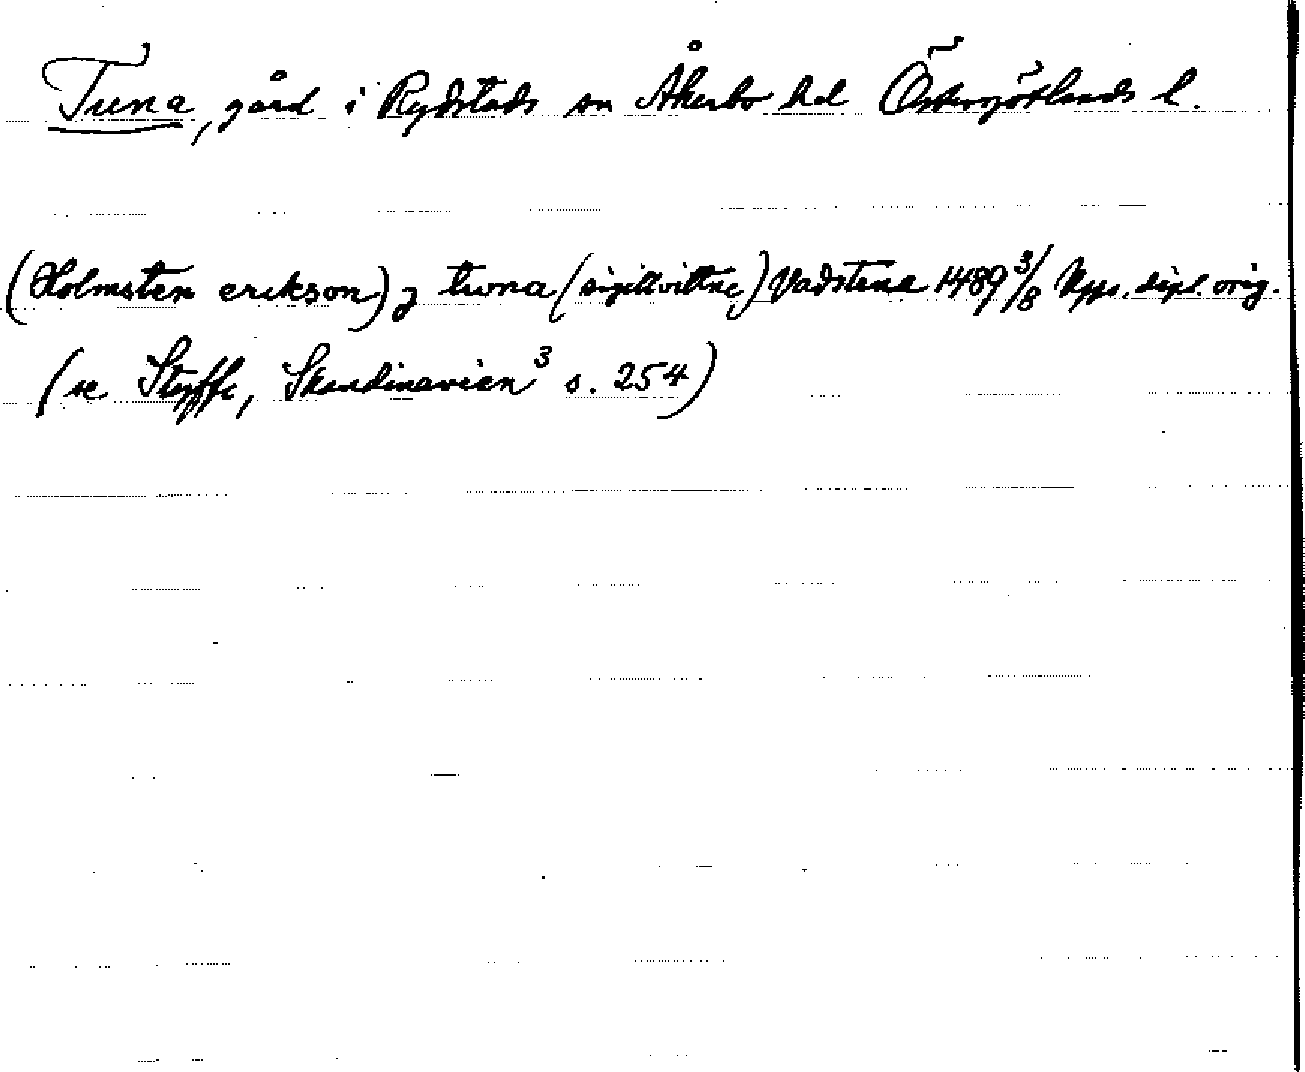 Tuna, gård i Rystads sn Åkerbo hd Östergötlands l.
(Holmsten erikson) j tuna (sigillvittne) Vadstena 1489 3/8 Upps. dipl. orig.
(se Styffe, Skandinavien³ s. 254)